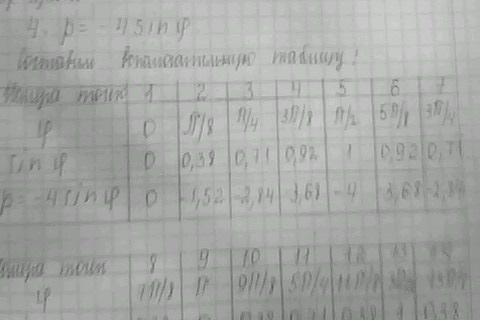 4. ρ = -4 sin φ
Составим вспомогательную таблицу:
Номера точек 1 2 3 4 5 6 7
φ 0 π/8 π/4 3π/8 π/2 5π/8 3π/4
sin φ 0 0,38 0,71 0,92 1 0,92 0,71
ρ = -4 sin φ 0 -1,52 -2,84 -3,68 -4 -3,68 -2,84
Номера точек 8 9 10 11 12 13 14
φ 7π/8 π 9π/8 5π/4 11π/8